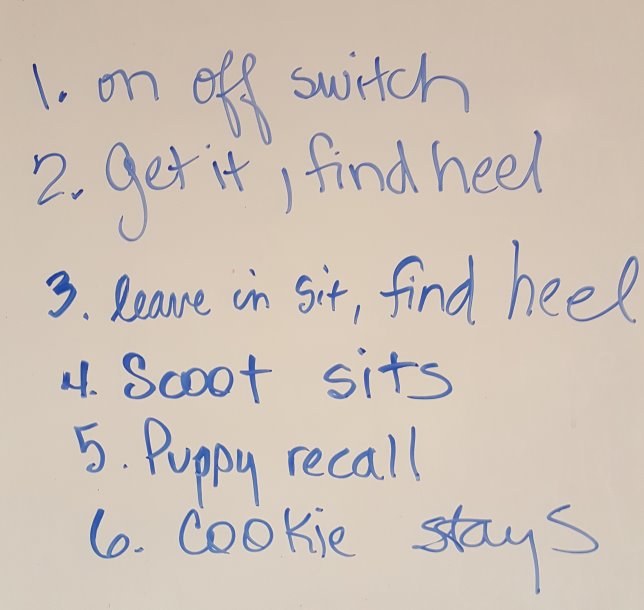 1. on off switch
2. get it, find heel
3. leave in sit, find heel
4. Scoot sits
5. Puppy recall
6. Cookie stays